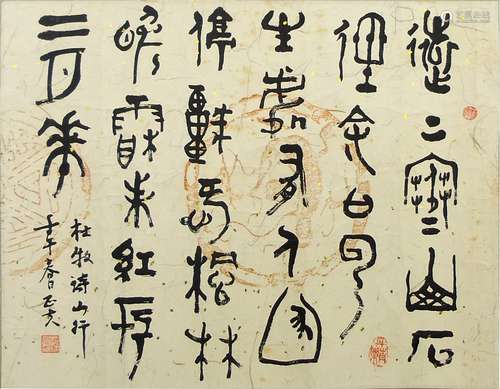 遠上寒山石
徑斜白云
生處有人家
停車楓林
晚霜葉紅於
二月花
杜牧诗山行
壬午春正夫